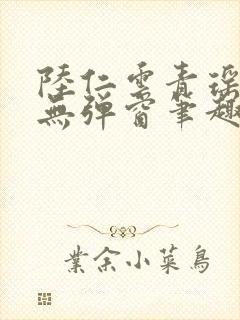 陸仁雲青瑶
無彈窗筆趣
業余小菜鳥